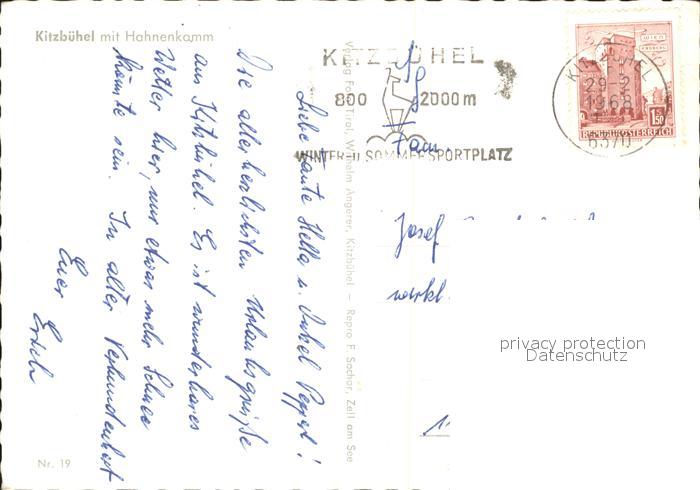 Kitzbühel mit Hahnenkamm
Liebe Tante Hella u. Onkel Pepperl!
Die allerherzlichsten Urlaubsgrüße
aus Kitzbühel. Es ist wunderbares
Wetter hier, nur etwas mehr Schnee
könnte sein. In alter Verbundenheit
Euer
Nr. 19
Verlag Foto Tirol, Wilhelm Angerer, Kitzbühel – Repro F. Sochor, Zell am See
KITZBÜHEL
800 2000 m
WINTER- U. SOMMERSPORTPLATZ
KITZBÜHEL
29.2.
1968
6370
WIEN
ERDBERG
1.50
REPUBLIK ÖSTERREICH
Fam.
Josef
privacy protection
Datenschutz